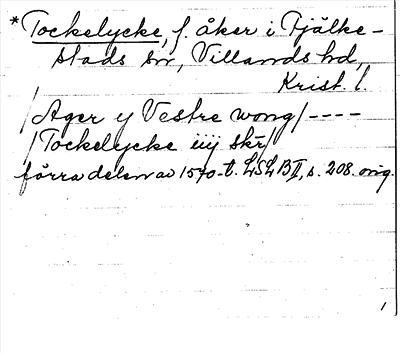 *Tockelycke, f. åker i Fjälke-
stads sn, Villands hd,
Krist. l.
/Ager y Vestre wong/----
/Tockelycke iiij skr/
förra delen av 1570-t. LSLB II, s. 208. orig.
1